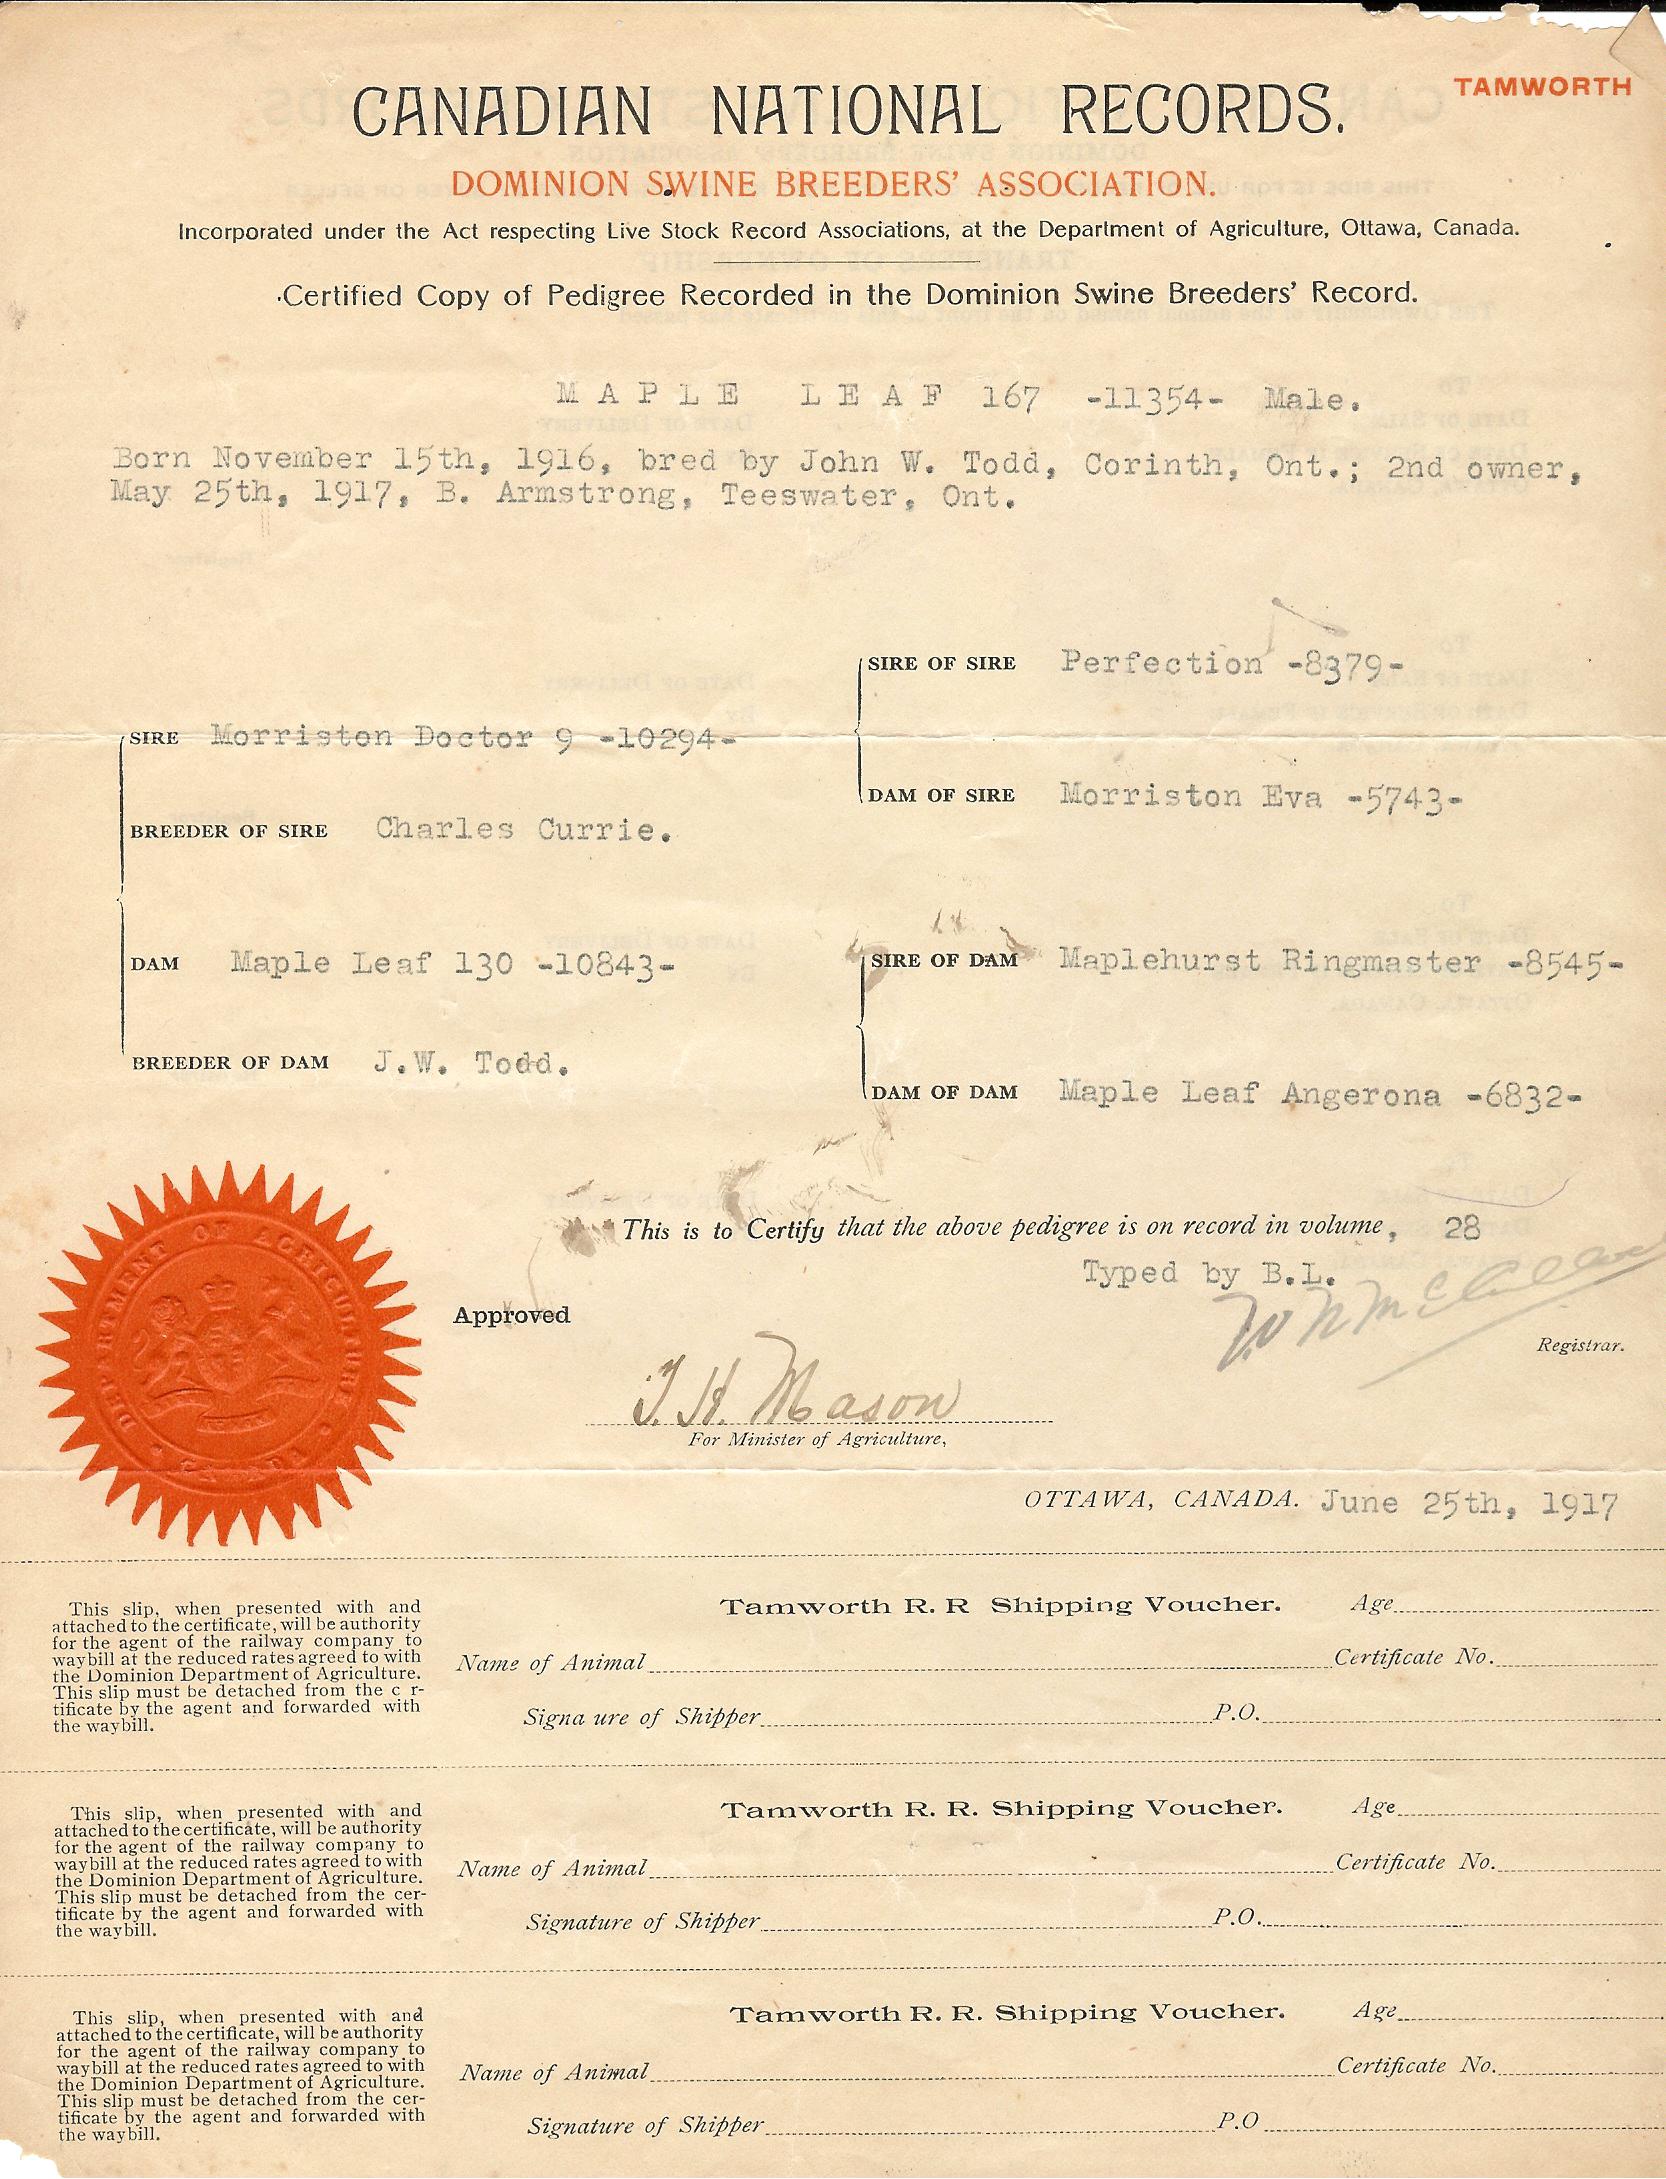 TAMWORTH
CANADIAN NATIONAL RECORDS.
DOMINION SWINE BREEDERS' ASSOCIATION.
Incorporated under the Act respecting Live Stock Record Associations, at the Department of Agriculture, Ottawa, Canada.
Certified Copy of Pedigree Recorded in the Dominion Swine Breeders' Record.
MAPLE LEAF 167 -11354- Male.
Born November 15th, 1916, bred by John W. Todd, Corinth, Ont.; 2nd owner,
May 25th, 1917, B. Armstrong, Teeswater, Ont.
SIRE OF SIRE Perfection -8379-
SIRE Morriston Doctor 9 -10294-
DAM OF SIRE Morriston Eva -5743-
BREEDER OF SIRE Charles Currie.
DAM Maple Leaf 130 -10843-
SIRE OF DAM Maplehurst Ringmaster -8545-
BREEDER OF DAM J.W. Todd.
DAM OF DAM Maple Leaf Angerona -6832-
This is to Certify that the above pedigree is on record in volume, 28
Typed by B.L.
DEPARTMENT OF AGRICULTURE
CANADA
Approved
Registrar.
T. H. Mason
For Minister of Agriculture,
OTTAWA, CANADA. June 25th, 1917
This slip, when presented with and
attached to the certificate, will be authority
for the agent of the railway company to
waybill at the reduced rates agreed to with
the Dominion Department of Agriculture.
This slip must be detached from the c r-
tificate by the agent and forwarded with
the waybill.
Tamworth R. R Shipping Voucher. Age
Name of Animal Certificate No.
Signa ure of Shipper P.O.
This slip, when presented with and
attached to the certificate, will be authority
for the agent of the railway company to
waybill at the reduced rates agreed to with
the Dominion Department of Agriculture.
This slip must be detached from the cer-
tificate by the agent and forwarded with
the waybill.
Tamworth R. R. Shipping Voucher. Age
Name of Animal Certificate No.
Signature of Shipper P.O.
This slip, when presented with and
attached to the certificate, will be authority
for the agent of the railway company to
waybill at the reduced rates agreed to with
the Dominion Department of Agriculture.
This slip must be detached from the cer-
tificate by the agent and forwarded with
the waybill.
Tamworth R. R. Shipping Voucher. Age
Name of Animal Certificate No.
Signature of Shipper P.O